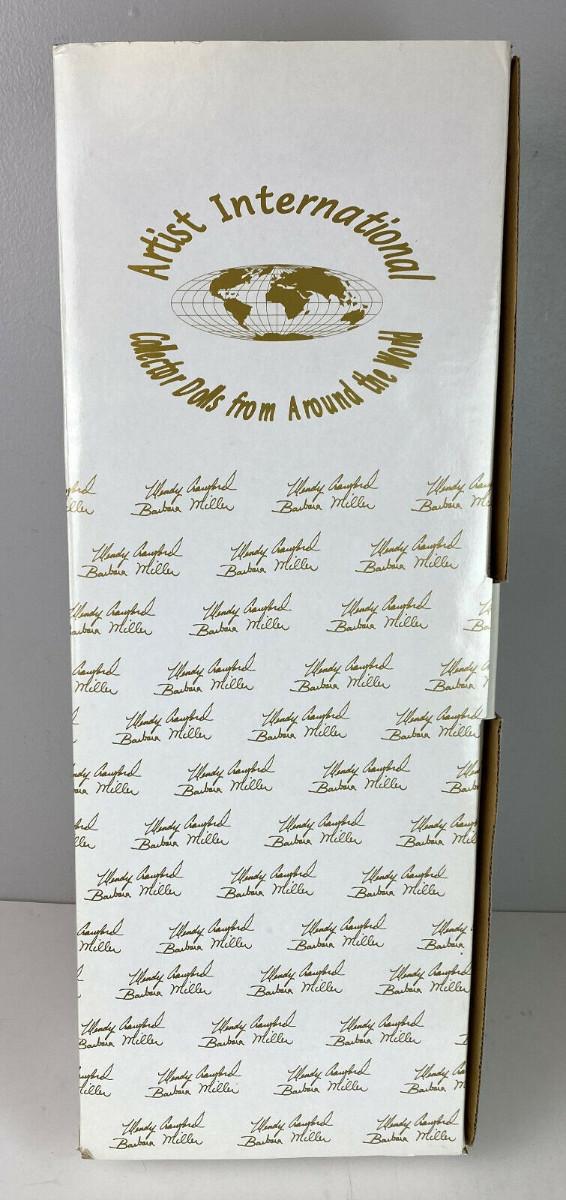 Artist International
Collector Dolls from Around the World
Wendy Crawford Wendy Crawford Wendy
Barbara Miller Barbara Miller Barbara
Wendy Crawford Wendy Crawford Wendy Crawford
Barbara Miller Barbara Miller Barbara Miller
Wendy Crawford Wendy Crawford Wendy Crawford
Miller Barbara Miller Barbara Miller
Crawford Wendy Crawford Wendy Crawford Wendy
Miller Barbara Miller Barbara Miller Barbara
Wendy Crawford Wendy Crawford Wendy Crawford
Barbara Miller Barbara Miller Barbara Miller
Crawford Wendy Crawford Wendy Crawford
Miller Barbara Miller Barbara Miller
Wendy Crawford Wendy Crawford Wendy
Barbara Miller Barbara Miller Barbara
Wendy Crawford Wendy Crawford Wendy Crawford
Barbara Miller Barbara Miller Barbara Miller
Crawford Wendy Crawford Wendy Crawford Wendy
Miller Barbara Miller Barbara Miller Barbara
Wendy Crawford Wendy Crawford Wendy Crawford
Barbara Miller Barbara Miller Barbara Miller
Wendy Crawford Wendy Crawford Wendy Crawford
Barbara Miller Barbara Miller Barbara Miller
Wendy Crawford Wendy Crawford Wendy
Barbara Miller Barbara Miller Barbara
Wendy Crawford Wendy Crawford Wendy Crawford
Barbara Miller Barbara Miller Barbara Miller